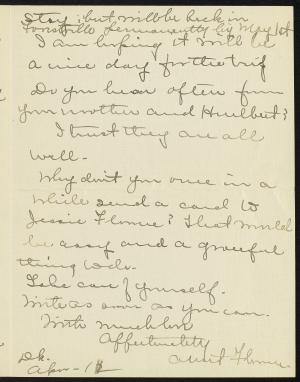 stay, but will be back in
permanently by May 1st
I am hoping it will be
a nice day for the trip
Do you hear often from
your mother and Hurlbert?
I trust they are all
well.
Why don't you once in a
while send a card to
Jessie Florence? That would
be easy and a graceful
thing to do.
Take care of yourself.
Write as soon as you can.
With much love
Affectionately
Aunt Florence